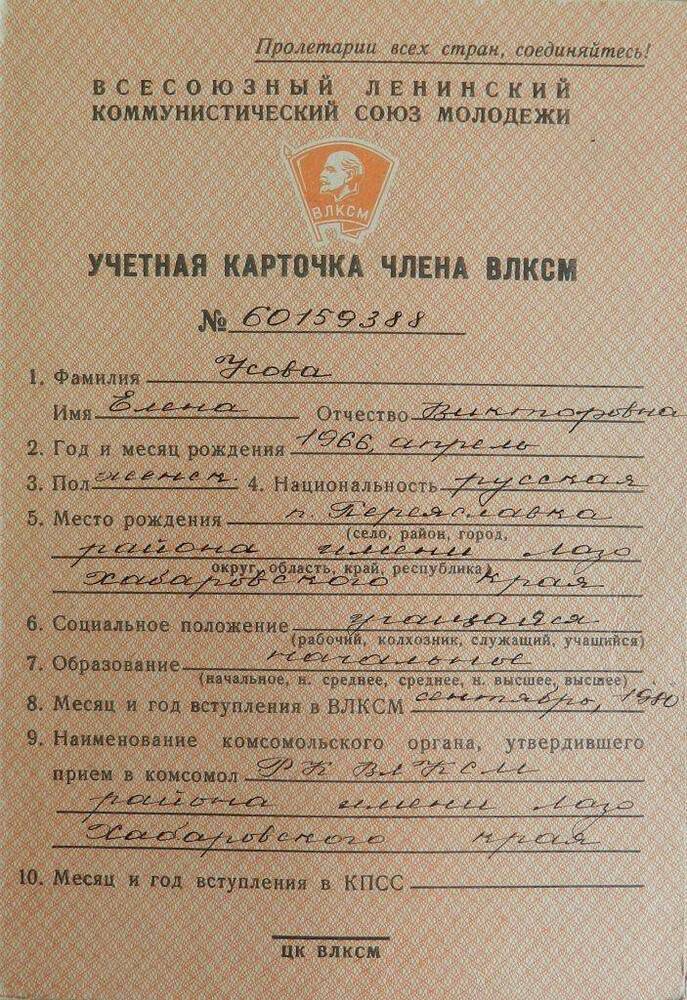 Пролетарии всех стран, соединяйтесь!
ВСЕСОЮЗНЫЙ ЛЕНИНСКИЙ
КОММУНИСТИЧЕСКИЙ СОЮЗ МОЛОДЕЖИ
ВЛКСМ
УЧЕТНАЯ КАРТОЧКА ЧЛЕНА ВЛКСМ
№ 60159388
1. Фамилия Усова
Имя Елена Отчество Викторовна
2. Год и месяц рождения 1966, апрель
3. Пол женск. 4. Национальность русская
5. Место рождения п. Переяславка
(село, район, город,
района имени Лазо
округ, область, край, республика)
Хабаровского края
6. Социальное положение учащаяся
(рабочий, колхозник, служащий, учащийся)
7. Образование начальное
(начальное, н. среднее, среднее, н. высшее, высшее)
8. Месяц и год вступления в ВЛКСМ сентябрь, 1980
9. Наименование комсомольского органа, утвердившего
прием в комсомол РК ВЛКСМ
района имени Лазо
Хабаровского края
10. Месяц и год вступления в КПСС
ЦК ВЛКСМ